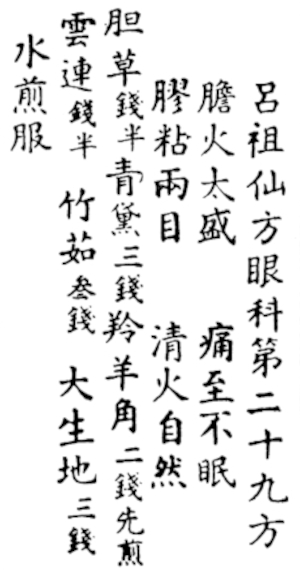 呂祖仙方眼科第二十九方
膽火太盛 痛至不眠
膠粘兩目 清火自然
胆草錢半 青黛三錢 羚羊角二錢先煎
雲連錢半 竹茹叁錢 大生地三錢
水煎服